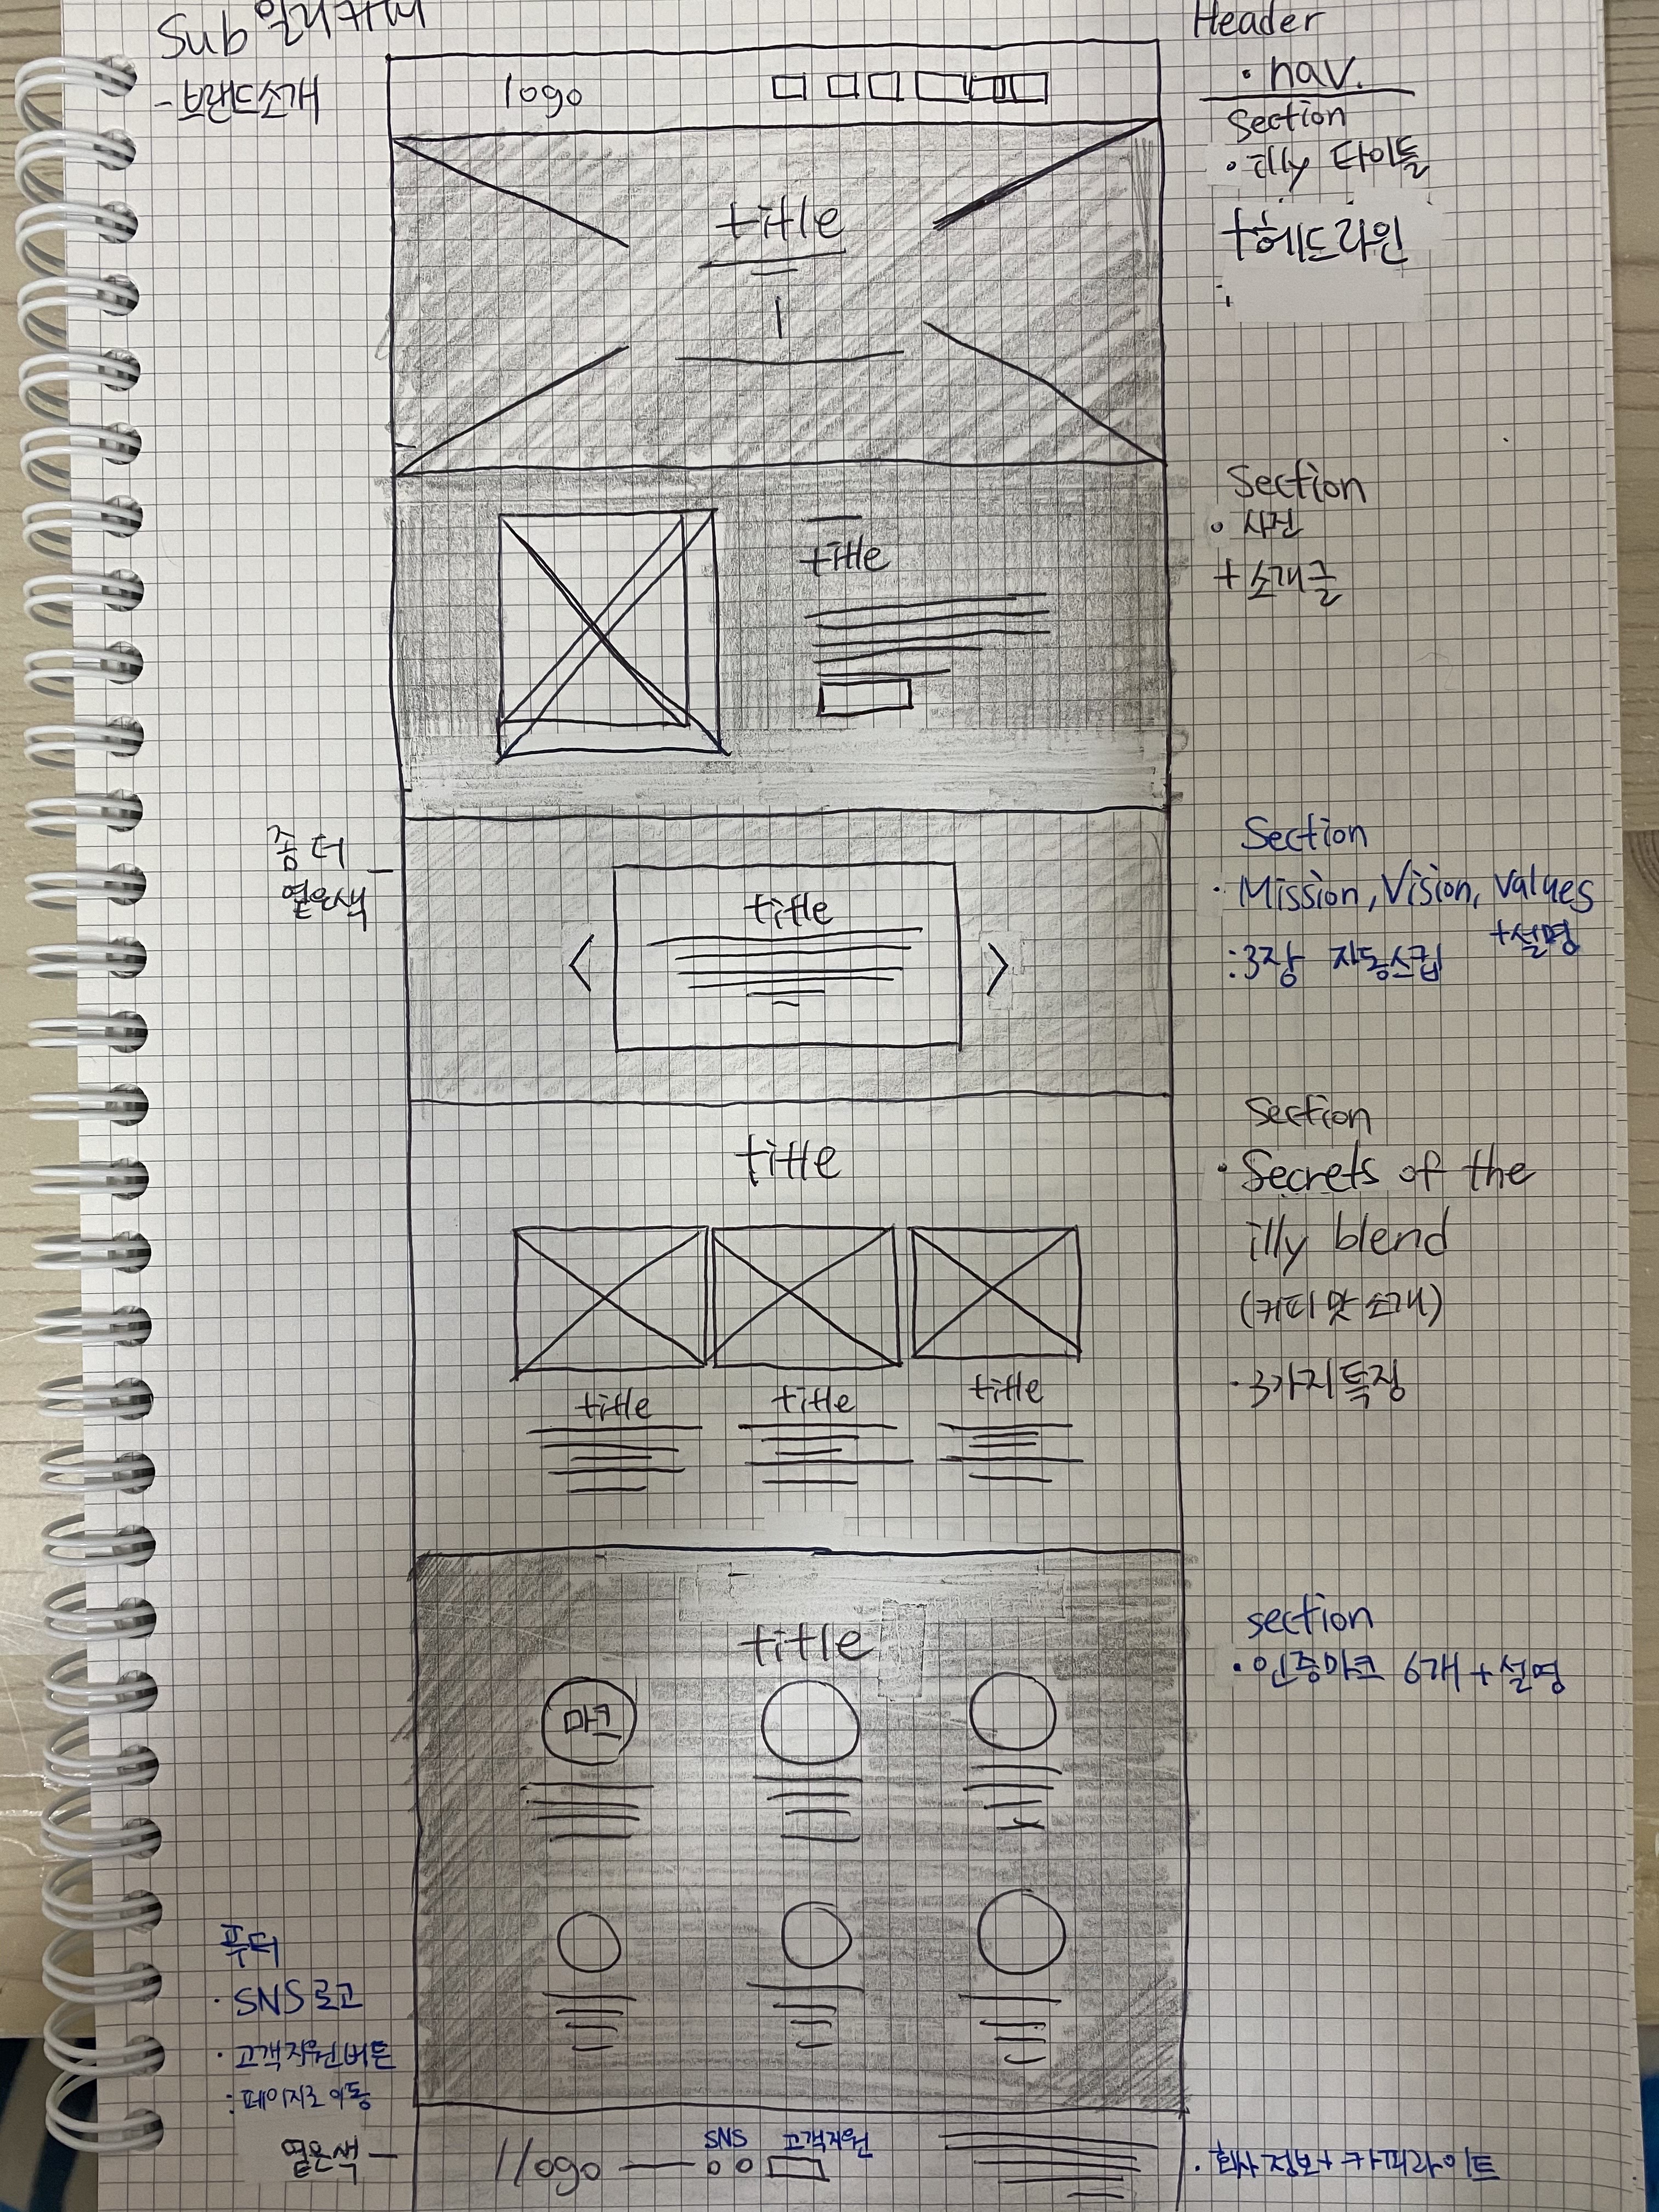 Sub 일리커피
- 브랜드소개
Header
· nav.
logo
Section
· illy 타이틀
+헤드라인
title
Section
· 사진
+ 소개글
title
좀 더
옅은색
Section
· Mission, Vision, Values
+설명
: 3장 자동스킵
title
<
>
Section
· Secrets of the
illy blend
(커피맛 소개)
· 3가지 특징
title
title
title
title
section
· 인증마크 6개 + 설명
title
마크
푸터
· SNS 로고
· 고객지원버튼
: 페이지로 이동
옅은색
logo
SNS
고객지원
· 회사 정보 + 카피라이트